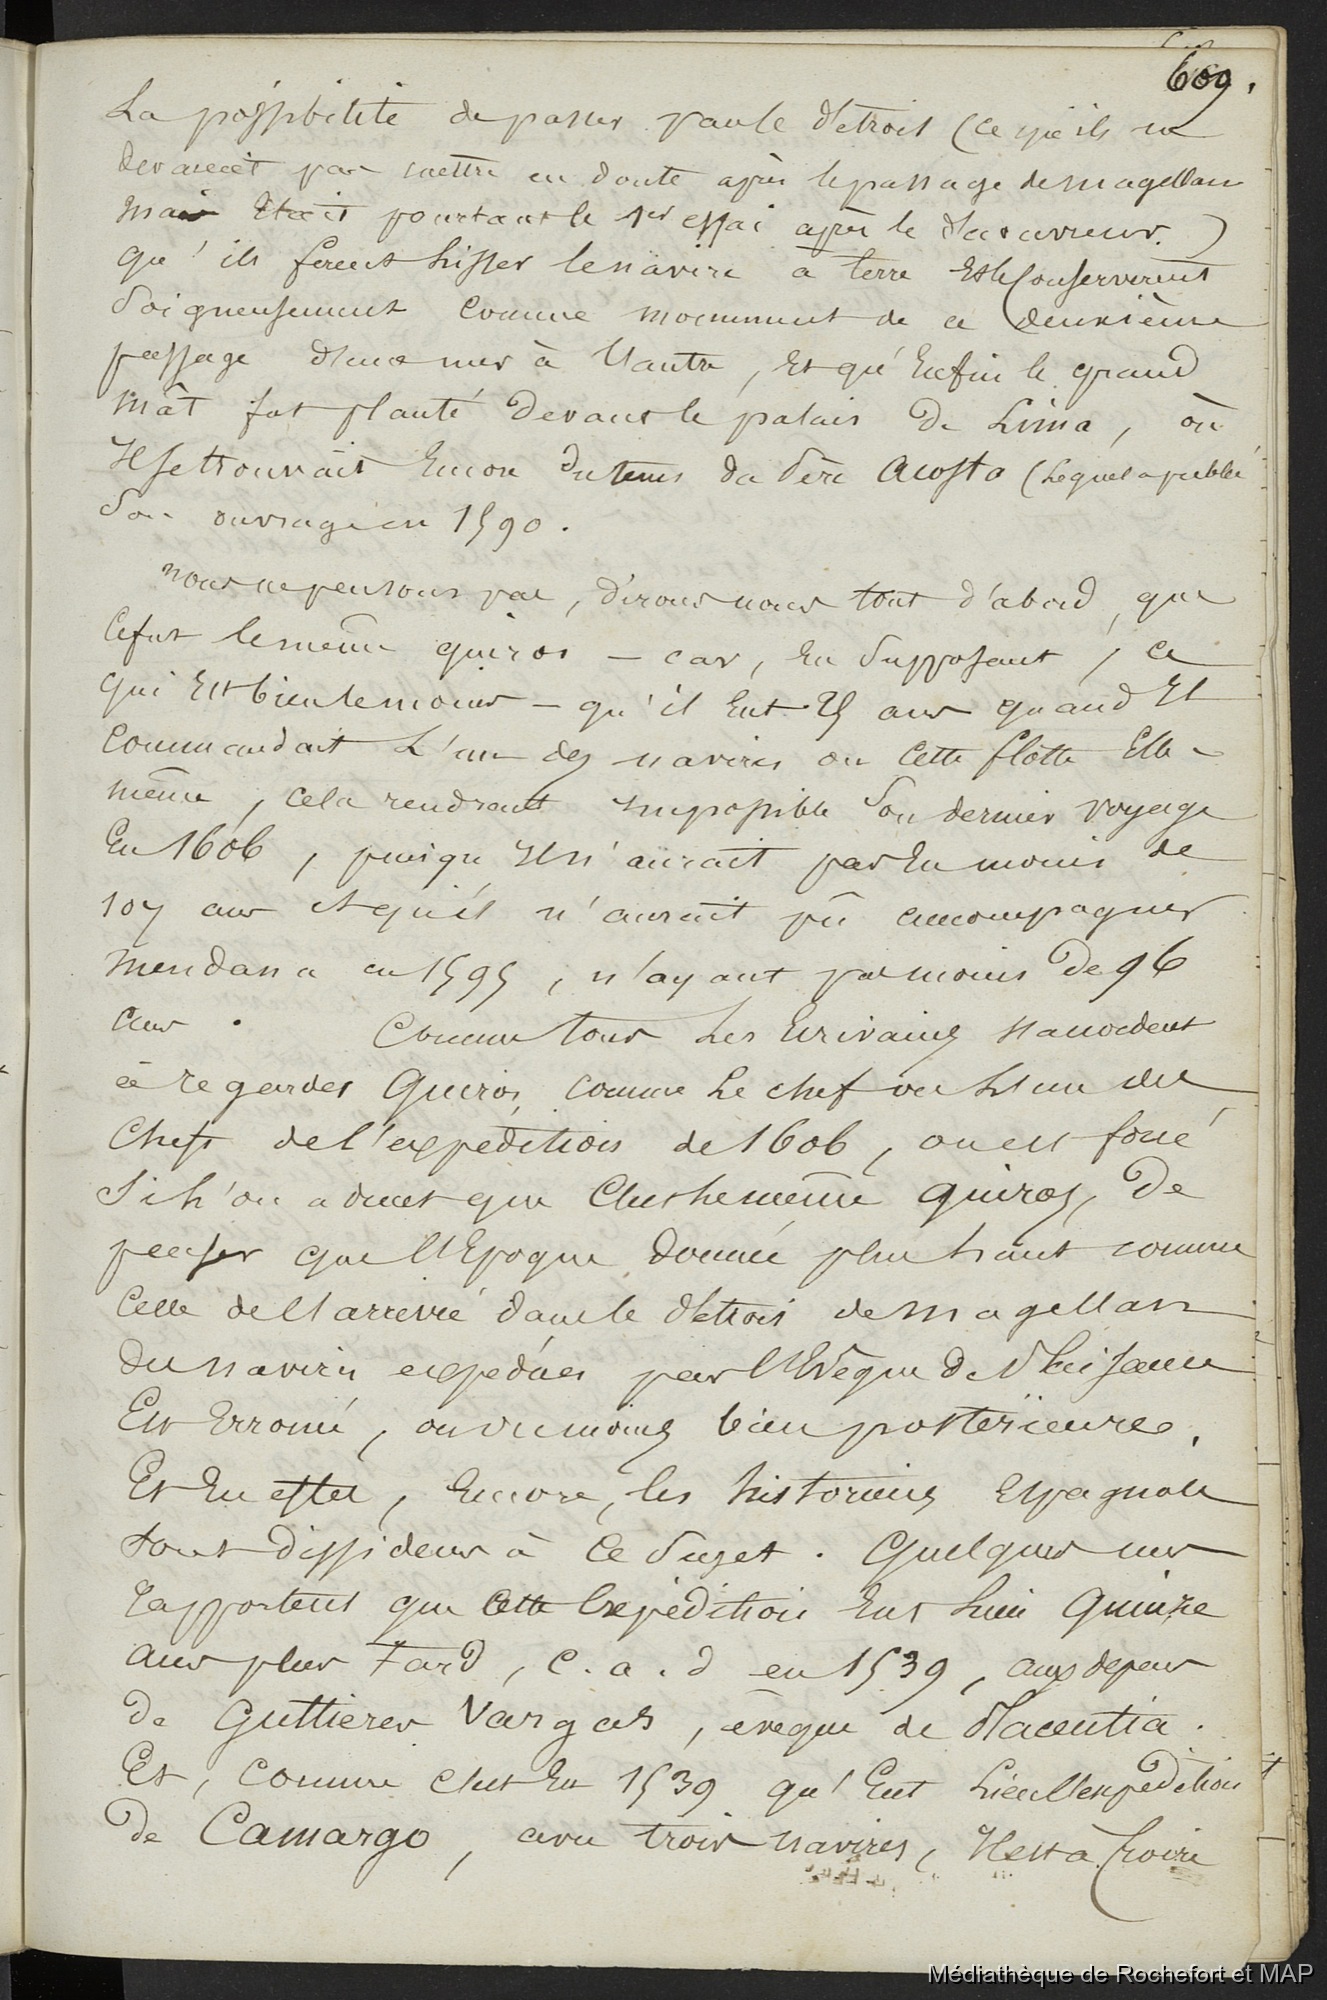 609.
La possibilité de passer par le détroit (ce qu'ils ne
devaient pas mettre en doute après le passage de magellan
mais était pourtant le 1er essai après le découvreur.)
qu'ils firent hisser le navire à terre Et le Conservèrent
Soigneusement comme monument de ce deuxième
passage d'une mer à l'autre, Et qu'Enfin le grand
mât fut planté devant le palais de Lima, où
Il se trouvait Encore du tems du Père Acosta (Lequel a publié
Son ouvrage en 1590.
nous ne pensons pas, dirons nous tout d'abord, que
Ce fut le même quiros — car, En Supposant, ce
qui Est bien le moins — qu'il Eut 25 ans quand Il
Commandait L'un des navires ou cette flotte Elle
même, cela rendrait impossible Son dernier voyage
En 1606, puisqu'Il n'aurait pas Eu moins de
107 ans et qu'il n'aurait pû accompagner
Mendana en 1595, n'ayant pas moins de 96
ans. Comme tous Les Ecrivains s'accordent
à regarder Quiros, comme Le chef ou L'un des
Chefs de l'expédition de 1606, on est forcé
Si L'on admet que C'est le même quiros, De
penser que l'Epoque donnée plus haut comme
Celle de l'arrivée dans le détroit de Magellan
des navires expédiés par l'Evêque de Plaisance
Est Erronée, ou du moins bien postérieure.
Et En effet, Encore, les historiens Espagnols
sont dissidens à ce Sujet. Quelques uns
rapportent que cette Expédition Eut Lieu Quinze
ans plus tard, c.a.d en 1539, aux depens
de Guttierez Vargas, évêque de Placentia.
Et, comme c'est En 1539 qu'Eut Lieu l'expédition
de Camargo, avec trois navires, Il est à Croire
Médiathèque de Rochefort et MAP